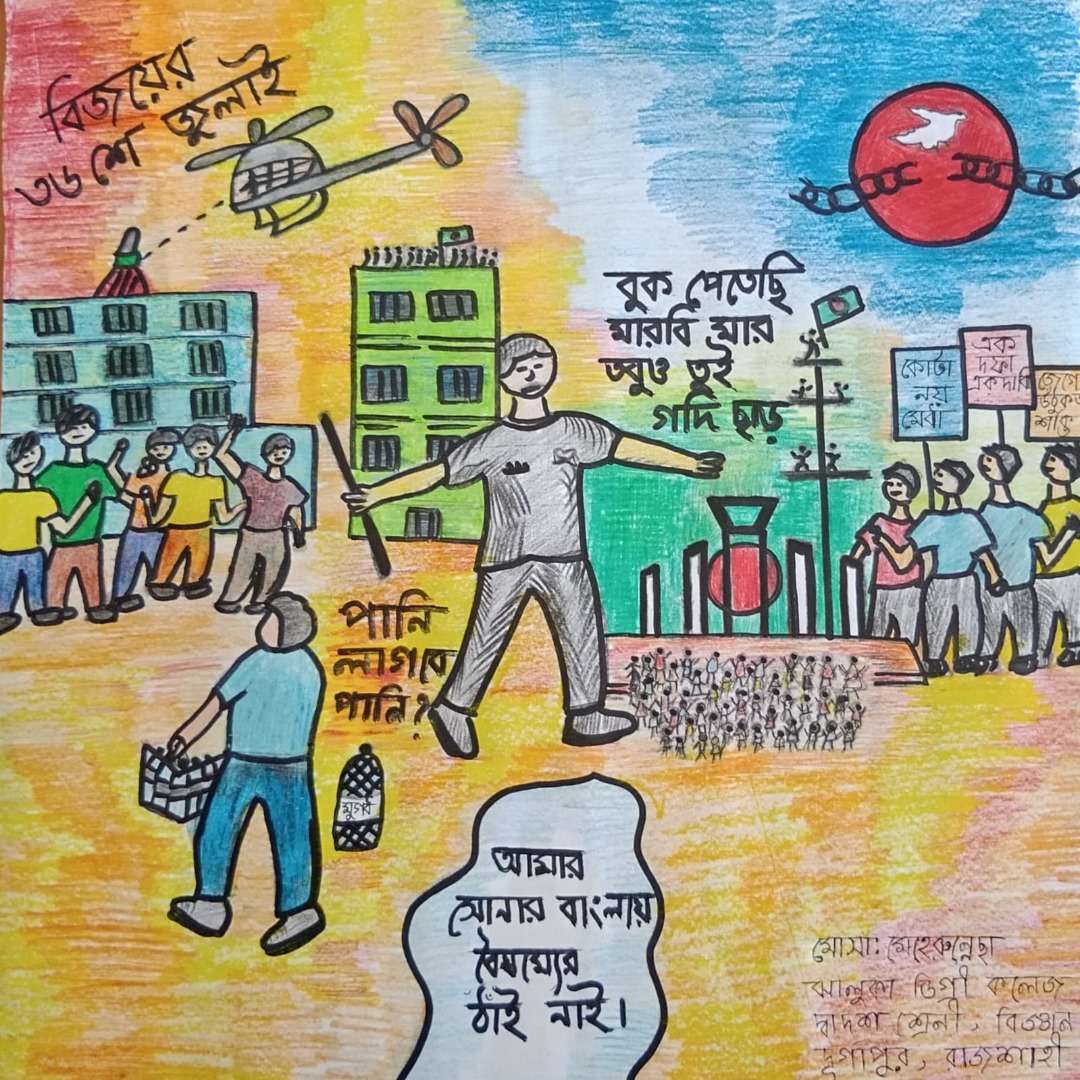 বিজয়ের
৩৬ শে জুলাই
বুক পেতেছি
মারবি মার
তবুও তুই
গদি ছাড়
কোটা
নয়
মেধা
এক
দফা
এক দাবি
পানি
লাগবে
পানি?
মুগ্ধ
আমার
সোনার বাংলায়
বৈষম্যের
ঠাঁই নাই।
মোসা: মেহেরুন্নেছা
ঝালুকা ডিগ্রী কলেজ
দ্বাদশ শ্রেনী, বিজ্ঞান
দূর্গাপুর, রাজশাহী